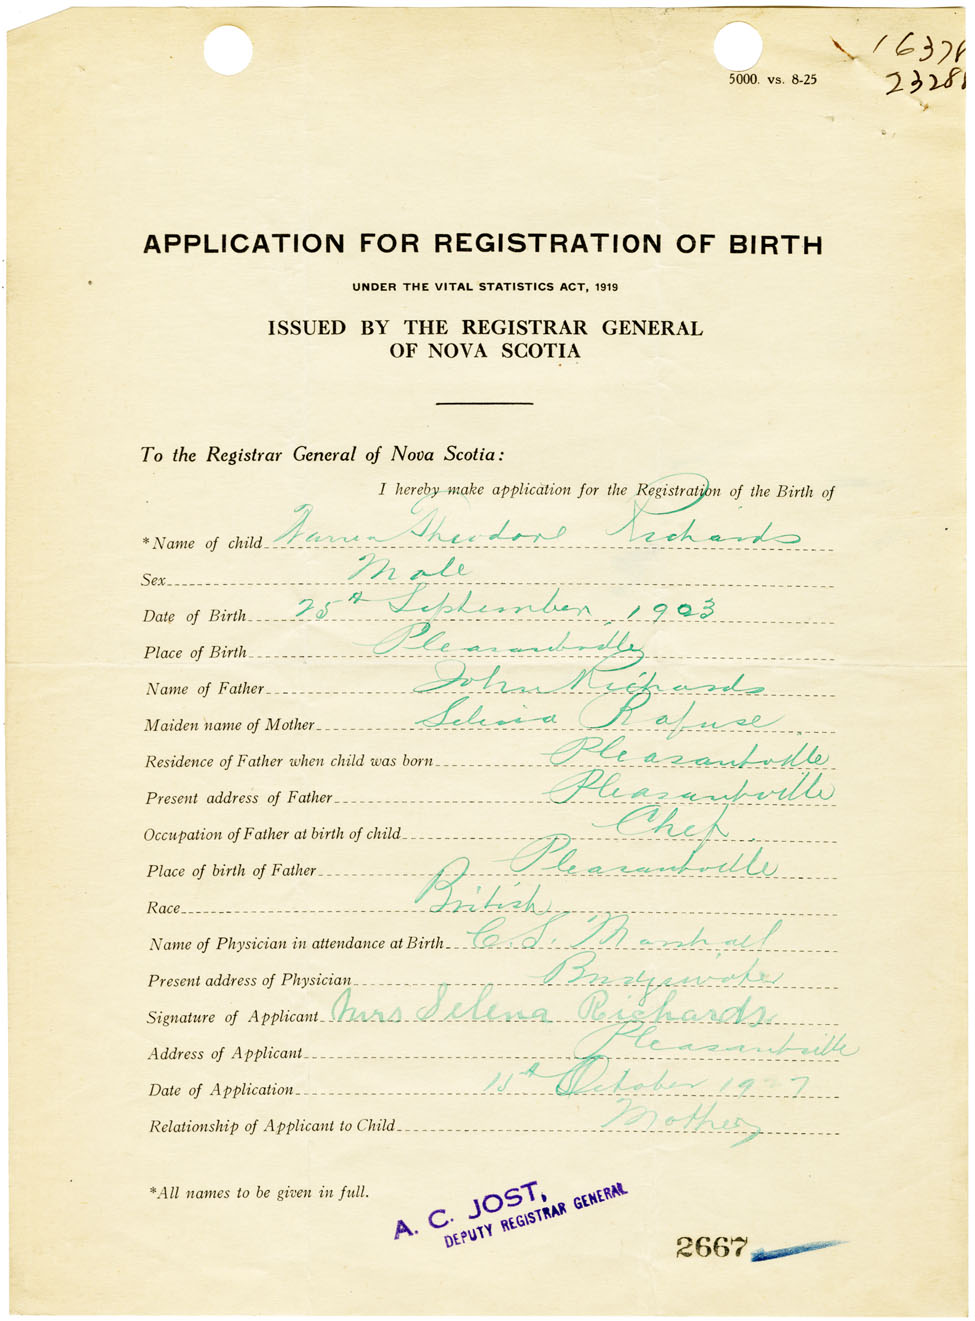 5000. vs. 8-25
1637
2328
APPLICATION FOR REGISTRATION OF BIRTH
UNDER THE VITAL STATISTICS ACT, 1919
ISSUED BY THE REGISTRAR GENERAL
OF NOVA SCOTIA
To the Registrar General of Nova Scotia:
I hereby make application for the Registration of the Birth of
*Name of child Warren Theodore Richards
Sex Male
Date of Birth 25th September, 1903
Place of Birth Pleasantville
Name of Father John Richards
Maiden name of Mother Rafuse
Residence of Father when child was born Pleasantville
Present address of Father Pleasantville
Occupation of Father at birth of child Chef
Place of birth of Father Pleasantville
Race British
Name of Physician in attendance at Birth C. S. Marshall
Present address of Physician Bridgewater
Signature of Applicant Mrs Selena Richards
Address of Applicant Pleasantville
Date of Application 15th October 1927
Relationship of Applicant to Child Mother
*All names to be given in full.
A. C. JOST,
DEPUTY REGISTRAR GENERAL
2667